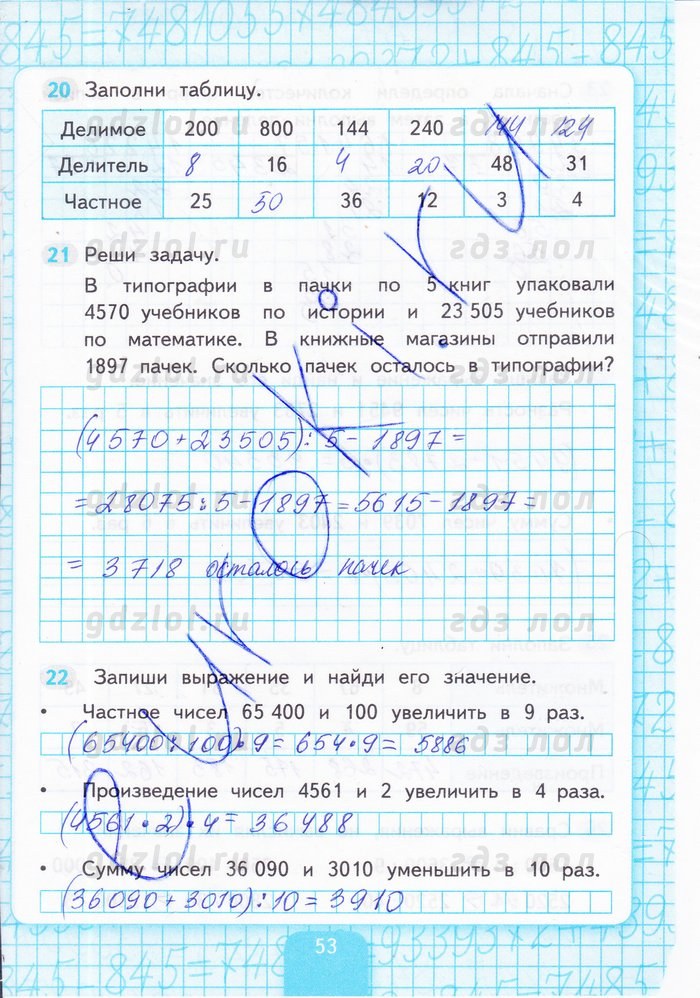 20 Заполни таблицу.
Делимое 200 800 144 240 144 124
Делитель 8 16 4 20 48 31
Частное 25 50 36 12 3 4
gdzlol.ru гдз лол
21 Реши задачу.
gdzlol.ru гдз лол
В типографии в пачки по 5 книг упаковали
4570 учебников по истории и 23 505 учебников
по математике. В книжные магазины отправили
1897 пачек. Сколько пачек осталось в типографии?
gdzlol.ru гдз лол
(4570+23505):5-1897=
=28075:5-1897=5615-1897=
gdzlol.ru гдз лол
=3718 осталось пачек
gdzlol.ru гдз лол
22 Запиши выражение и найди его значение.
• Частное чисел 65 400 и 100 увеличить в 9 раз.
(65400:100)•9=654•9=5886
gdzlol.ru гдз лол
• Произведение чисел 4561 и 2 увеличить в 4 раза.
(4561•2)•4=36488
• Сумму чисел 36 090 и 3010 уменьшить в 10 раз.
gdzlol.ru гдз лол
(36090+3010):10=3910
53